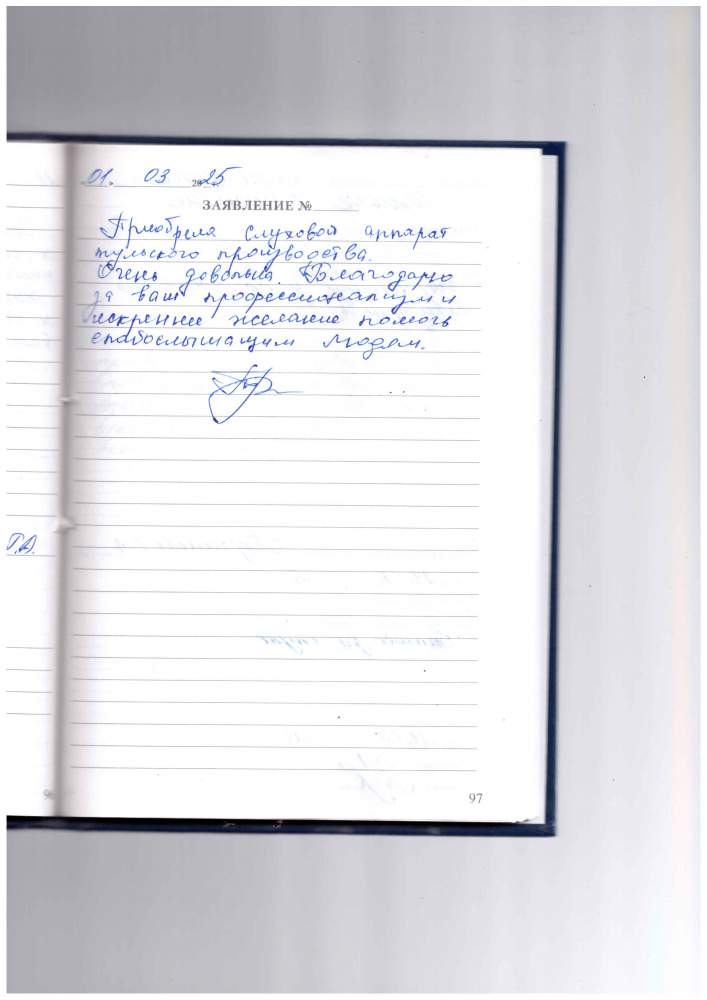 01. 03 2025
ЗАЯВЛЕНИЕ №
Приобрела слуховой аппарат
тульского производства.
Очень довольна. Благодарю
за ваш профессионализм и
искреннее желание помочь
слабослышащим людям.
Г.А.
97